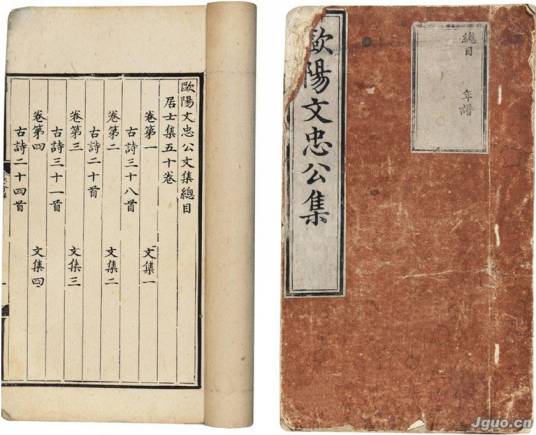 歐陽文忠公文集總目
居士集五十卷
卷第一 文集一
古詩三十八首
卷第二 文集二
古詩二十首
卷第三 文集三
古詩三十一首
卷第四 文集四
古詩二十四首
歐陽文忠公集
總目 年譜
Jguo.cn